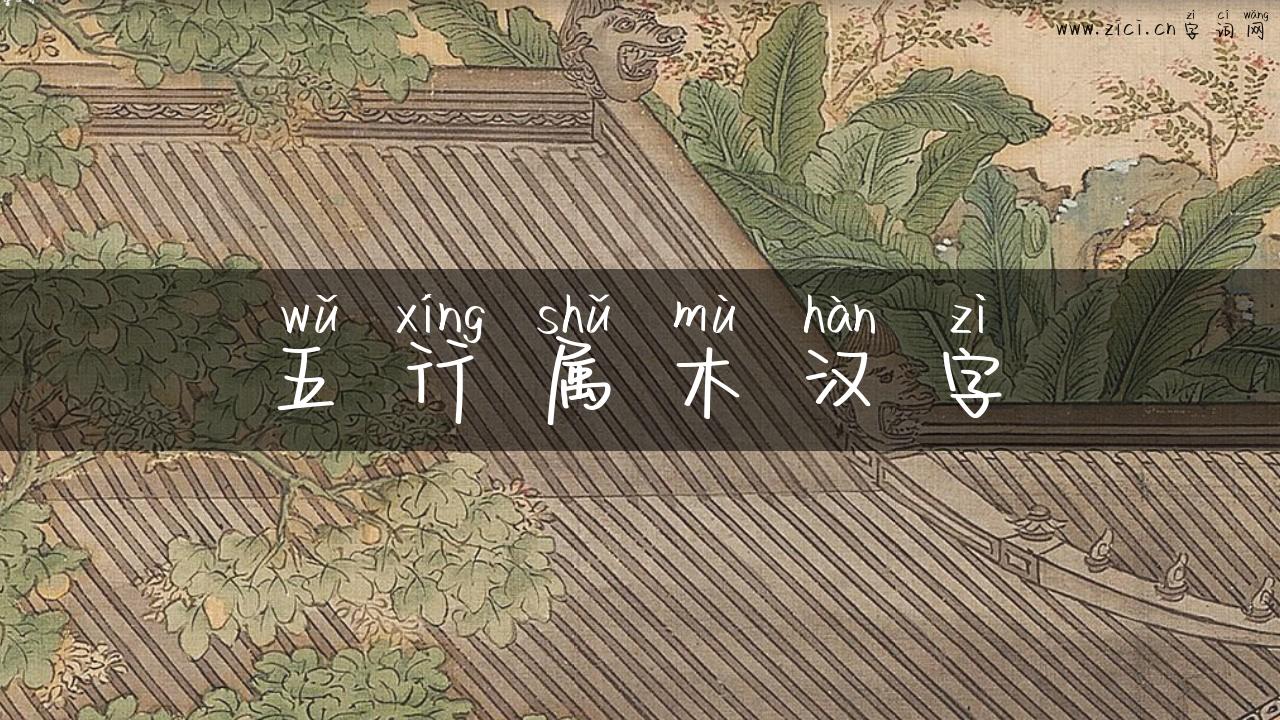 zì cí wǎng
www.zici.cn 字词网
wǔ xíng shǔ mù hàn zì
五行属木汉字